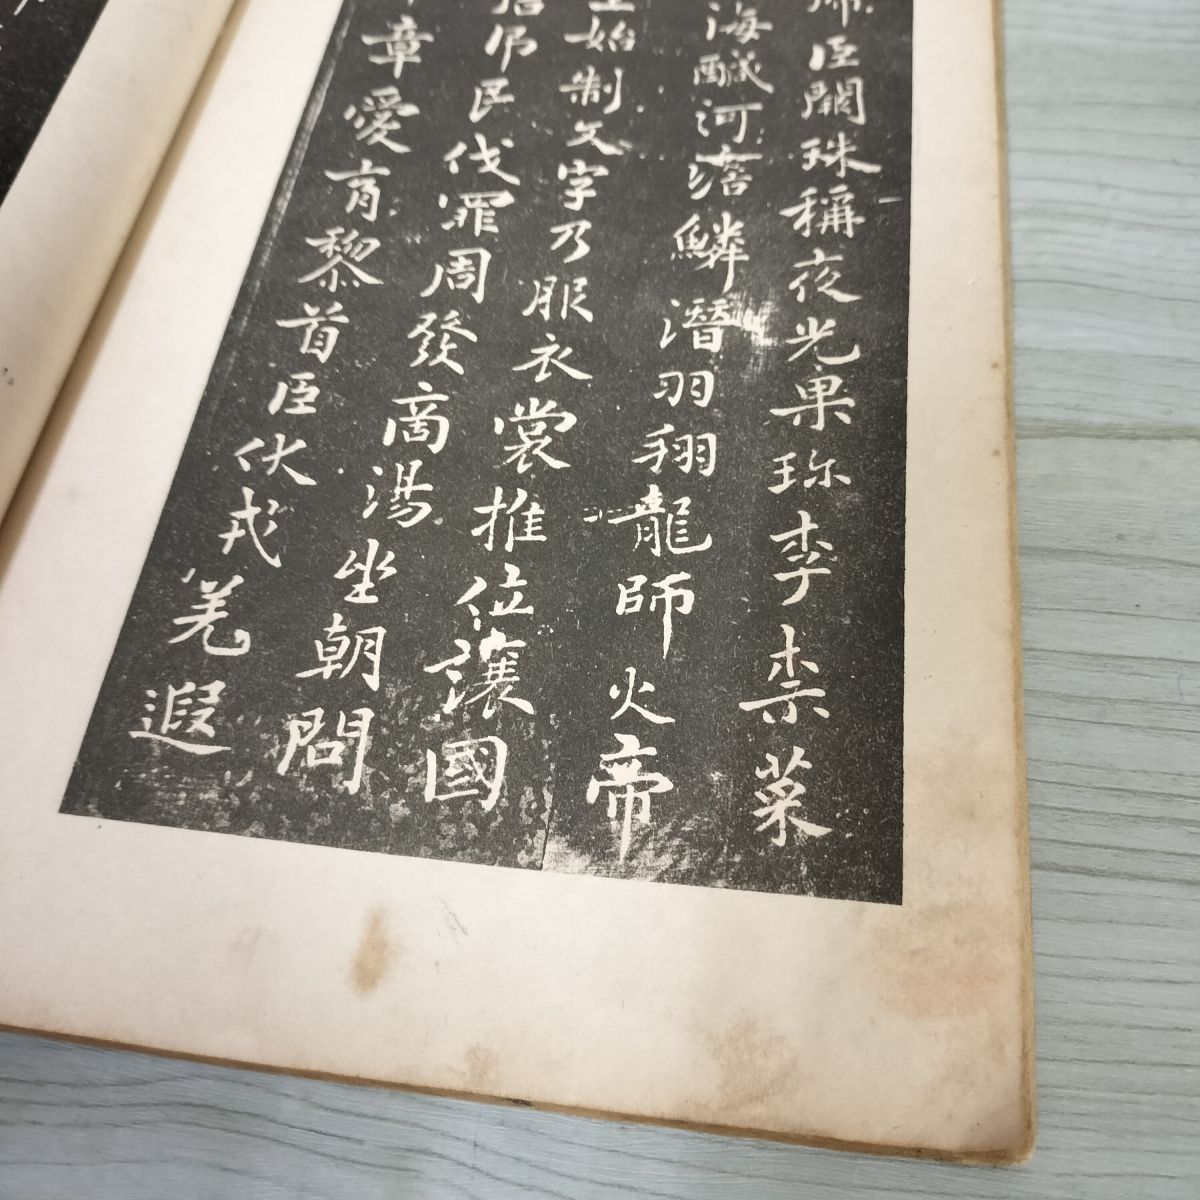 巨闕珠稱夜光果珍李柰菜
海鹹河淡鱗潛羽翔龍師火帝
始制文字乃服衣裳推位讓國
弔民伐罪周發商湯坐朝問
章愛育黎首臣伏戎羌遐